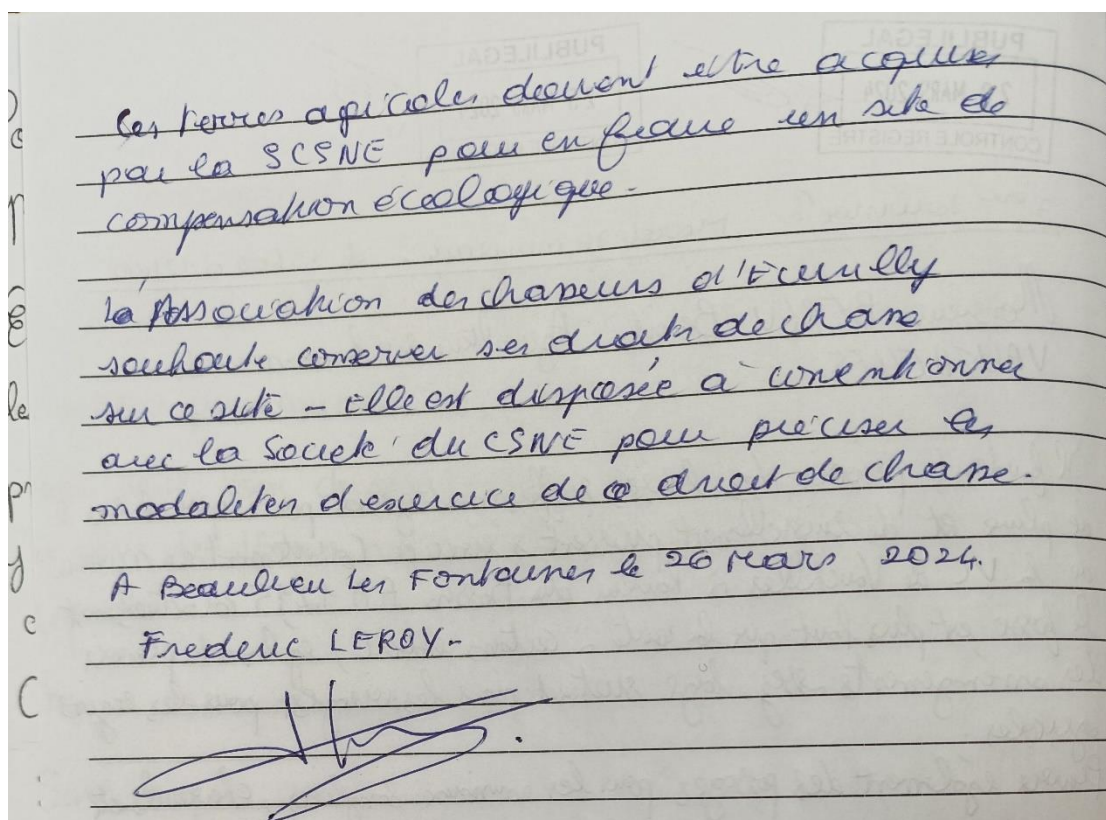 Ces terres agricoles devront être acquises
par la SCSNE pour en faire un site de
compensation écologique.
la Association des chasseurs d'Ecuvilly
souhaite conserver ses droits de chasse
sur ce site - Elle est disposée à conventionner
avec la Société du CSNE pour préciser les
modalités d'exercice de ce droit de chasse.
A Beaulieu les Fontaines le 26 Mars 2024.
Frederic LEROY-
PUBLILEGAL
PUBLILEGAL
CONTROLE REGISTRE